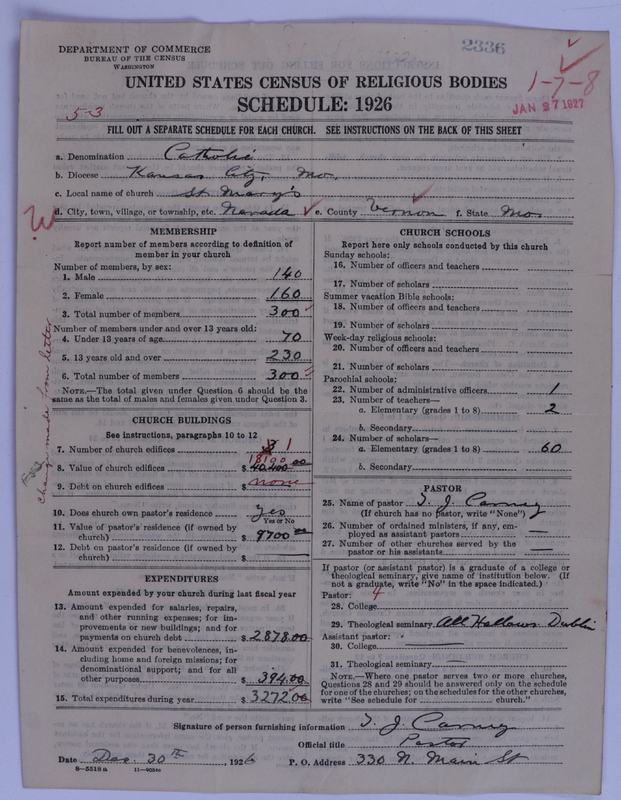 2336
DEPARTMENT OF COMMERCE
BUREAU OF THE CENSUS
WASHINGTON
UNITED STATES CENSUS OF RELIGIOUS BODIES
1-7-8
SCHEDULE: 1926
JAN 27 1927
5-3
FILL OUT A SEPARATE SCHEDULE FOR EACH CHURCH. SEE INSTRUCTIONS ON THE BACK OF THIS SHEET
a. Denomination Catholic
b. Diocese Kansas City, Mo.
c. Local name of church St Mary's
d. City, town, village, or township, etc. Nevada e. County Vernon f. State Mo
MEMBERSHIP
Report number of members according to definition of member in your church
Number of members, by sex:
1. Male 140
2. Female 160
3. Total number of members 300
Number of members under and over 13 years old:
4. Under 13 years of age 70
5. 13 years old and over 230
6. Total number of members 300
NOTE.—The total given under Question 6 should be the
same as the total of males and females given under Question 3.
change made from letter
CHURCH BUILDINGS
See instructions, paragraphs 10 to 12
7. Number of church edifices 3 1
18100
8. Value of church edifices $ 40400 00
9. Debt on church edifices $ none
10. Does church own pastor's residence yes
Yes or No
11. Value of pastor's residence (if owned by
church) $ 9700 00
12. Debt on pastor's residence (if owned by
church) $
EXPENDITURES
Amount expended by your church during last fiscal year
13. Amount expended for salaries, repairs,
and other running expenses; for im-
provements or new building; and for
payments on church debt $ 2878.00
14. Amount expended for benevolences, in-
cluding home and foreign missions; for
denominational support; and for all
other purposes $ 394.00
15. Total expenditures during year $ 3272.00
CHURCH SCHOOLS
Report here only schools conducted by this church
Sunday schools:
16. Number of officers and teachers
17. Number of scholars
Summer vacation Bible schools:
18. Number of officers and teachers
19. Number of scholars
Week-day religious schools:
20. Number of officers and teachers
21. Number of scholars
Parochial schools:
22. Number of administrative officers 1
23. Number of teachers—
a. Elementary (grades 1 to 8) 2
b. Secondary
24. Number of scholars—
a. Elementary (grades 1 to 8) 60
b. Secondary
PASTOR
25. Name of pastor T. J. Carney
(If church has no pastor, write "None")
26. Number of ordained ministers, if any, em-
ployed as assistant pastors —
27. Number of other churches served by the
pastor or his assistants —
If pastor (or assistant pastor) is a graduate of a college or
theological seminary, give name of institution below. (If
not a graduate, write "No" in the space indicated.)
Pastor: 4
28. College
29. Theological seminary All Hallows Dublin
Assistant pastor:
30. College —
31. Theological seminary —
NOTE.—Where one pastor serves two or more churches,
Questions 28 and 29 should be answered only on the schedule
for one of the churches; on the schedules for the other churches,
write "See schedule for church."
Signature of person furnishing information T. J. Carney
Official title Pastor
Date Dec. 30th, 1926 P. O. Address 330 N. Main St
8-5518a 11-9034